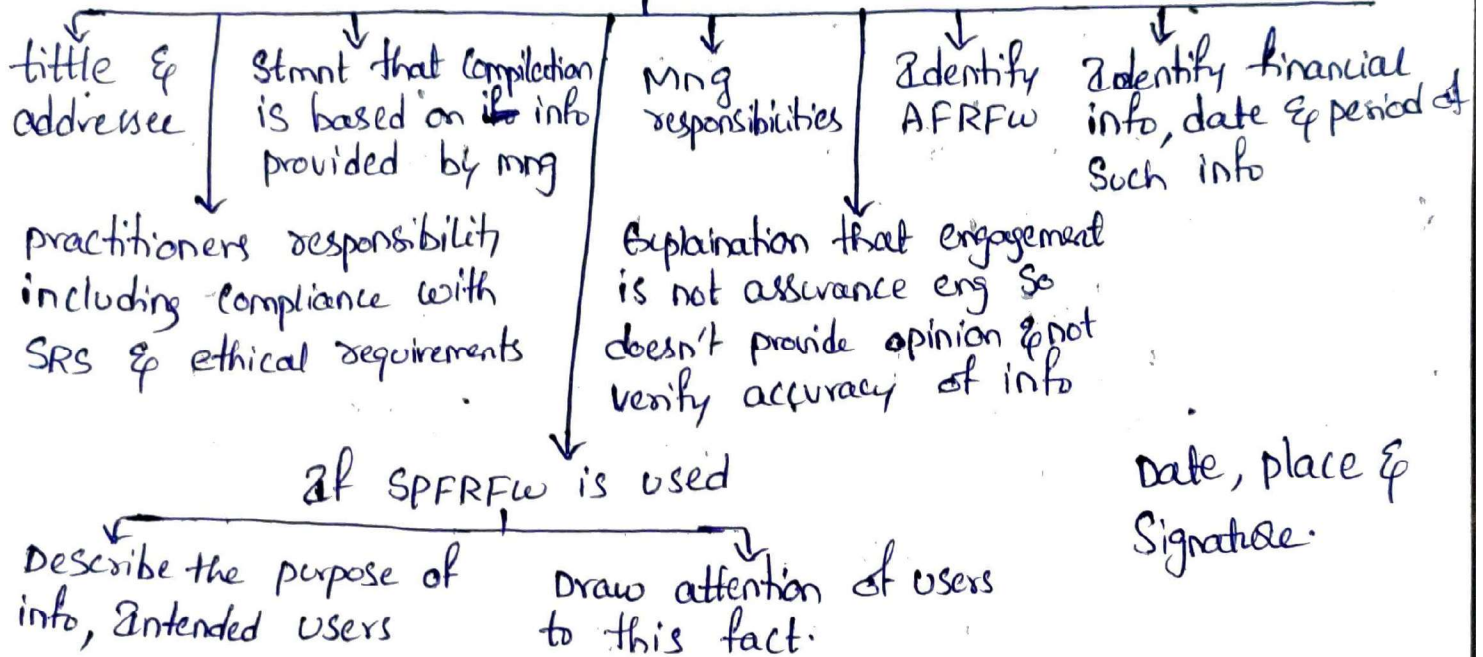 tittle &
addressee
Stmnt that Compilation
is based on info
provided by mng
Mng
responsibilities
Identify
AFRFW
Identify financial
info, date & period of
Such info
practitioners responsibility
including compliance with
SRS & ethical requirements
Explaination that engagement
is not assurance eng So
doesn't provide opinion & not
verify accuracy of info
If SPFRFW is used
Describe the purpose of
info, Intended users
Draw attention of users
to this fact.
Date, place &
Signature.